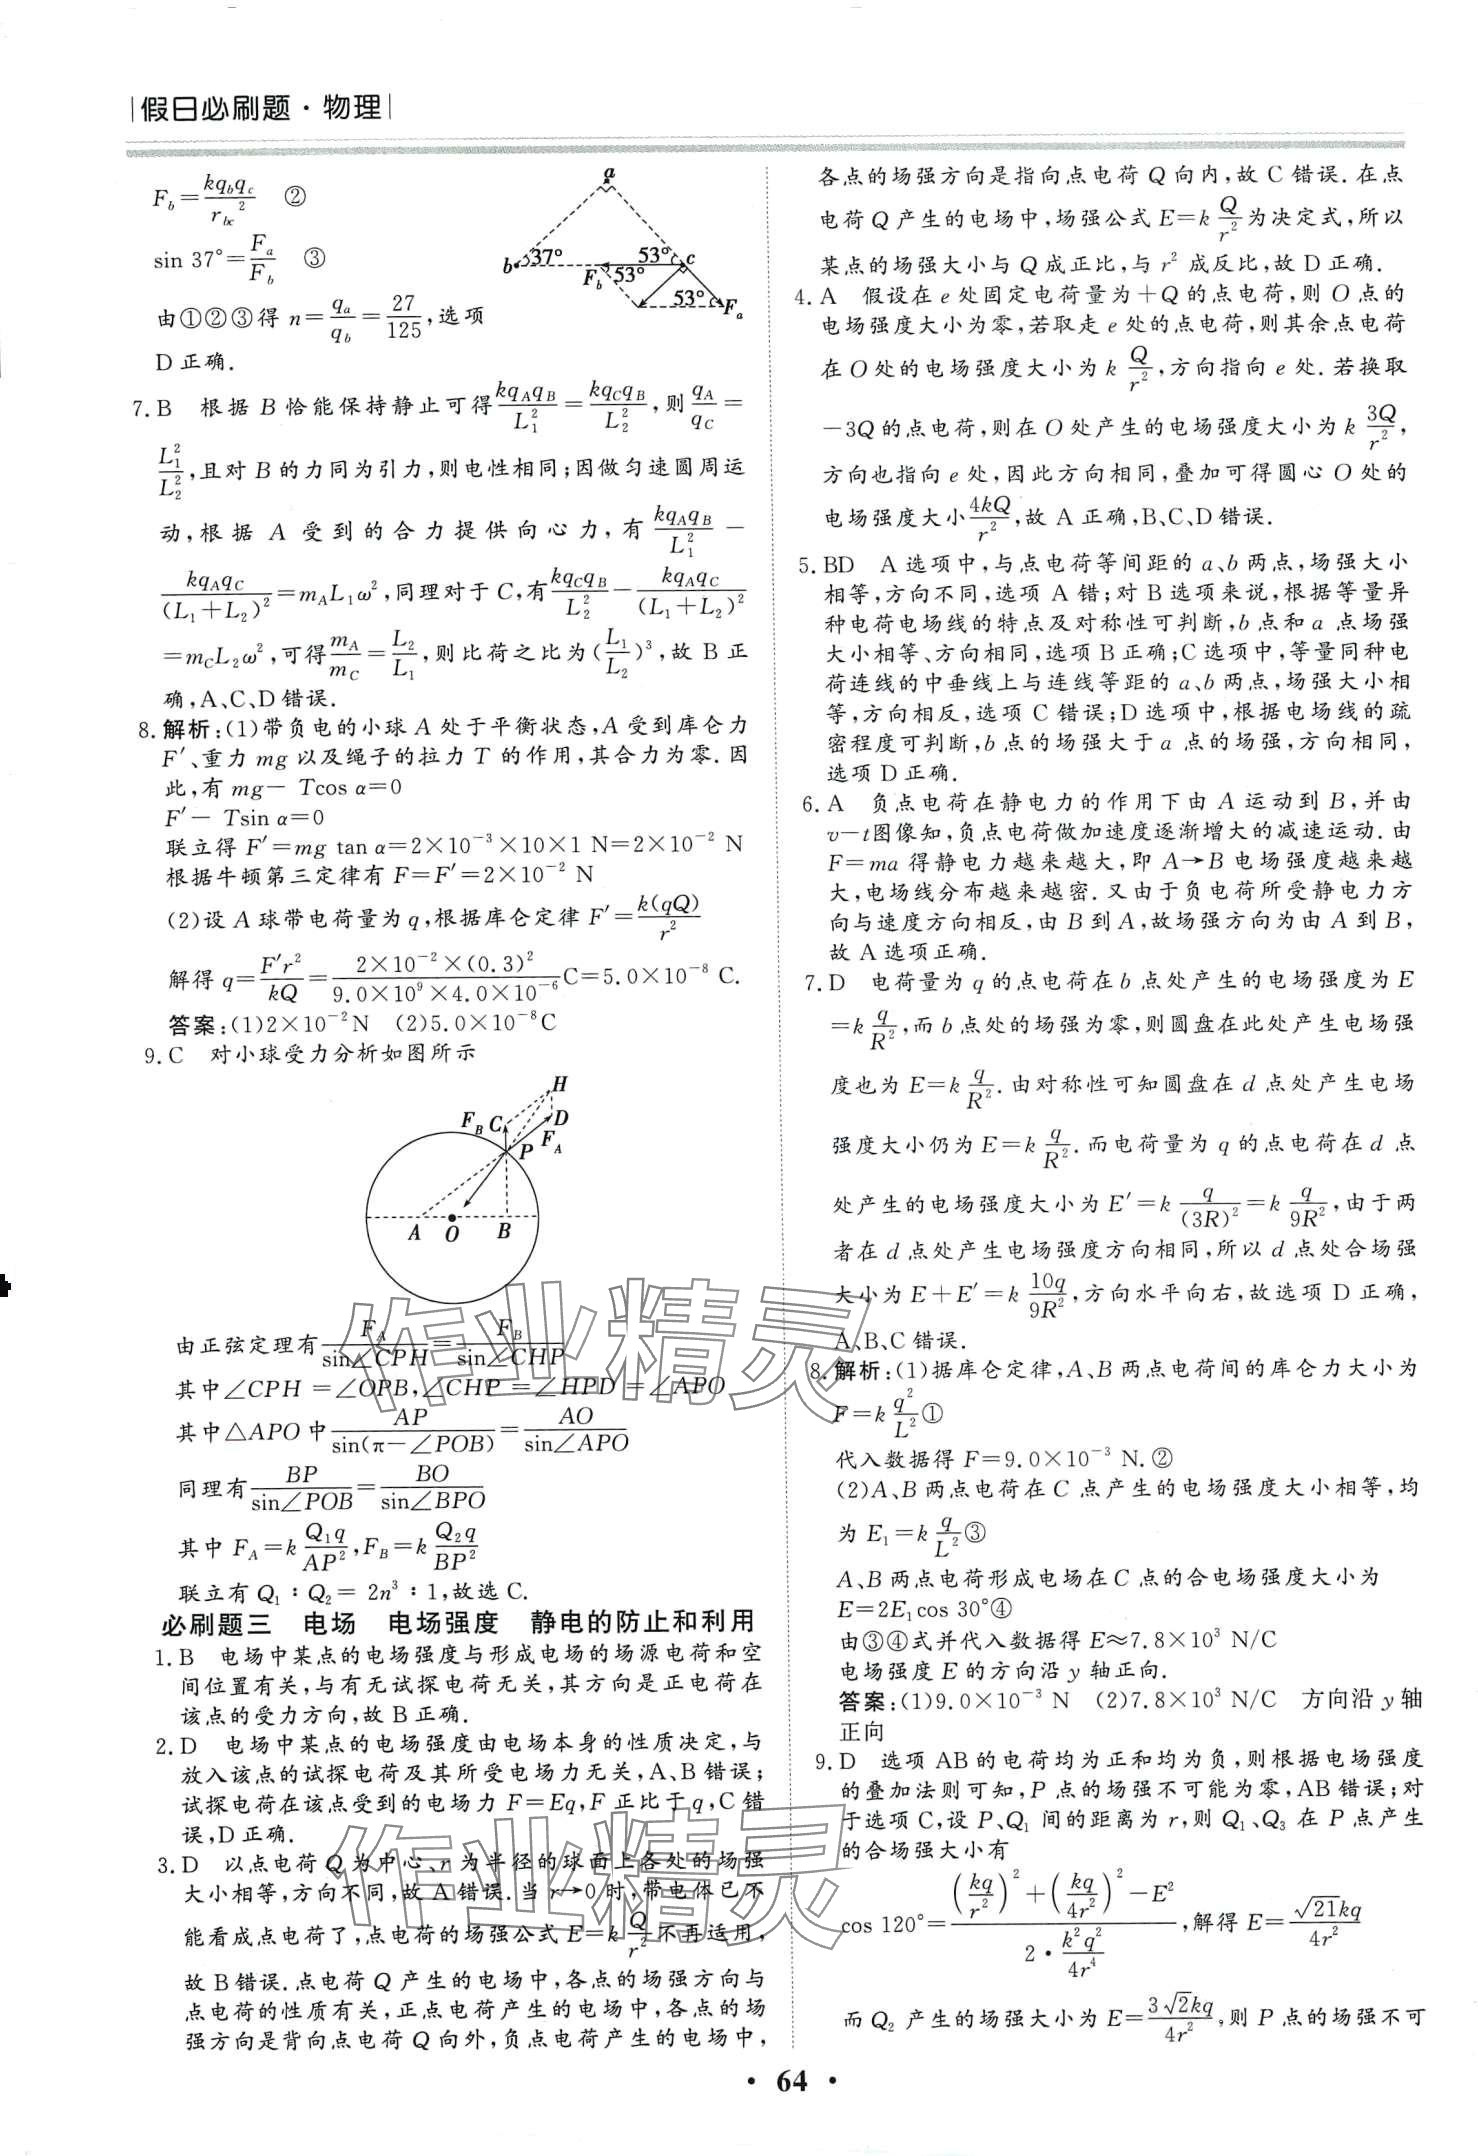 假日必刷题·物理
F_b=kq_bq_c/r_bc² ②
sin 37°=F_a/F_b ③
由①②③得 n=q_a/q_b=27/125,选项
D 正确.
a
b 37° 53° c
F_b 53°
53° F_a
7.B 根据 B 恰能保持静止可得 kq_Aq_B/L₁²=kq_Cq_B/L₂²,则 q_A/q_C=
L₁²/L₂²,且对 B 的力同为引力,则电性相同;因做匀速圆周运
动,根据 A 受到的合力提供向心力,有 kq_Aq_B/L₁²-
kq_Aq_C/(L₁+L₂)²=m_AL₁ω²,同理对于 C,有 kq_Cq_B/L₂²-kq_Aq_C/(L₁+L₂)²
=m_CL₂ω²,可得 m_A/m_C=L₂/L₁,则比荷之比为(L₁/L₂)³,故 B 正
确,A、C、D 错误.
8.解析:(1)带负电的小球 A 处于平衡状态,A 受到库仑力
F′、重力 mg 以及绳子的拉力 T 的作用,其合力为零.因
此,有 mg- Tcos α=0
F′- Tsin α=0
联立得 F′=mg tan α=2×10⁻³×10×1 N=2×10⁻² N
根据牛顿第三定律有 F=F′=2×10⁻² N
(2)设 A 球带电荷量为 q,根据库仑定律 F′=k(qQ)/r²
解得 q=F′r²/kQ=2×10⁻²×(0.3)²/9.0×10⁹×4.0×10⁻⁶ C=5.0×10⁻⁸ C.
答案:(1)2×10⁻²N (2)5.0×10⁻⁸C
9.C 对小球受力分析如图所示
H
F_B C D
F_A
P
A O B
由正弦定理有 F_A/sin∠CPH=F_B/sin∠CHP
其中∠CPH=∠OPB,∠CHP=∠HPD=∠APO
其中△APO 中 AP/sin(π-∠POB)=AO/sin∠APO
同理有 BP/sin∠POB=BO/sin∠BPO
其中 F_A=k Q₁q/AP²,F_B=k Q₂q/BP²
联立有 Q₁:Q₂= 2n³:1,故选 C.
必刷题三 电场 电场强度 静电的防止和利用
1.B 电场中某点的电场强度与形成电场的场源电荷和空
间位置有关,与有无试探电荷无关,其方向是正电荷在
该点的受力方向,故 B 正确.
2.D 电场中某点的电场强度由电场本身的性质决定,与
放入该点的试探电荷及其所受电场力无关,A、B 错误;
试探电荷在该点受到的电场力 F=Eq,F 正比于 q,C 错
误,D 正确.
3.D 以点电荷 Q 为中心、r 为半径的球面上各处的场强
大小相等,方向不同,故 A 错误.当 r→0 时,带电体已不
能看成点电荷了,点电荷的场强公式 E=k Q/r² 不再适用,
故 B 错误.点电荷 Q 产生的电场中,各点的场强方向与
点电荷的性质有关,正点电荷产生的电场中,各点的场
强方向是背向点电荷 Q 向外,负点电荷产生的电场中,
各点的场强方向是指向点电荷 Q 向内,故 C 错误.在点
电荷 Q 产生的电场中,场强公式 E=k Q/r² 为决定式,所以
某点的场强大小与 Q 成正比,与 r² 成反比,故 D 正确.
4.A 假设在 e 处固定电荷量为+Q 的点电荷,则 O 点的
电场强度大小为零,若取走 e 处的点电荷,则其余点电荷
在 O 处的电场强度大小为 k Q/r²,方向指向 e 处.若换取
-3Q 的点电荷,则在 O 处产生的电场强度大小为 k 3Q/r²,
方向也指向 e 处,因此方向相同,叠加可得圆心 O 处的
电场强度大小 4kQ/r²,故 A 正确,B、C、D 错误.
5.BD A 选项中,与点电荷等间距的 a、b 两点,场强大小
相等,方向不同,选项 A 错;对 B 选项来说,根据等量异
种电荷电场线的特点及对称性可判断,b 点和 a 点场强
大小相等、方向相同,选项 B 正确;C 选项中,等量同种电
荷连线的中垂线上与连线等距的 a、b 两点,场强大小相
等,方向相反,选项 C 错误;D 选项中,根据电场线的疏
密程度可判断,b 点的场强大于 a 点的场强,方向相同,
选项 D 正确.
6.A 负点电荷在静电力的作用下由 A 运动到 B,并由
v-t图像知,负点电荷做加速度逐渐增大的减速运动.由
F=ma 得静电力越来越大,即 A→B 电场强度越来越
大,电场线分布越来越密.又由于负电荷所受静电力方
向与速度方向相反,由 B 到 A,故场强方向为由 A 到 B,
故 A 选项正确.
7.D 电荷量为 q 的点电荷在 b 点处产生的电场强度为 E
=k q/R²,而 b 点处的场强为零,则圆盘在此处产生电场强
度也为 E=k q/R².由对称性可知圆盘在 d 点处产生电场
强度大小仍为 E=k q/R².而电荷量为 q 的点电荷在 d 点
处产生的电场强度大小为 E′=k q/(3R)²=k q/9R²,由于两
者在 d 点处产生电场强度方向相同,所以 d 点处合场强
大小为 E+E′=k 10q/9R²,方向水平向右,故选项 D 正确,
A、B、C 错误.
8.解析:(1)据库仑定律,A、B 两点电荷间的库仑力大小为
F=k q²/L²①
代入数据得 F=9.0×10⁻³ N.②
(2)A、B 两点电荷在 C 点产生的电场强度大小相等,均
为 E₁=k q/L²③
A、B 两点电荷形成电场在 C 点的合电场强度大小为
E=2E₁cos 30°④
由③④式并代入数据得 E≈7.8×10³ N/C
电场强度 E 的方向沿 y 轴正向.
答案:(1)9.0×10⁻³ N (2)7.8×10³ N/C 方向沿 y 轴
正向
9.D 选项 AB 的电荷均为正和均为负,则根据电场强度
的叠加法则可知,P 点的场强不可能为零,AB 错误;对
于选项 C,设 P、Q₁ 间的距离为 r,则 Q₁、Q₃ 在 P 点产生
的合场强大小有
cos 120°=((kq/r²)²+(kq/4r²)²-E²)/(2·k²q²/4r⁴),解得 E=√21kq/4r²
而 Q₂ 产生的场强大小为 E=3√2kq/4r²,则 P 点的场强不可
作业精灵
作业精灵
• 64 •